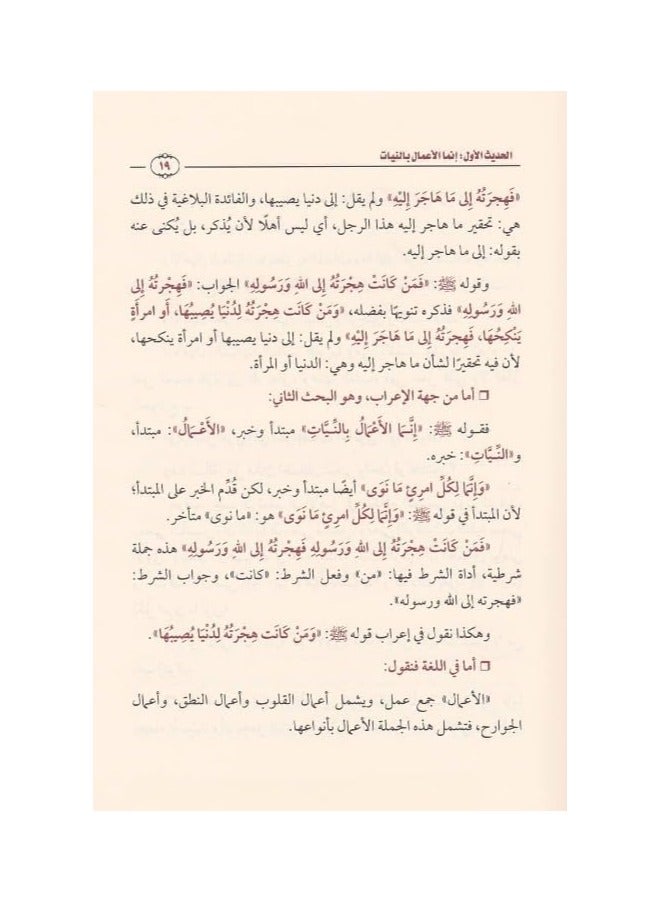 الحديث الأول: إنما الأعمال بالنيات
١٩
«فَهِجرَتُهُ إِلى مَا هَاجَرَ إِلَيْهِ» ولم يقل: إلى دنيا يصيبها، والفائدة البلاغية في ذلك
هي: تحقير ما هاجر إليه هذا الرجل، أي ليس أهلًا لأن يُذكر، بل يُكنى عنه
بقوله: إلى ما هاجر إليه.
وقوله ﷺ: «فَمَنْ كَانَتْ هِجْرَتُهُ إِلى اللهِ وَرَسُولِهِ» الجواب: «فَهِجْرَتُهُ إِلى
اللهِ وَرَسُولِهِ» فذكره تنويهًا بفضله، «وَمَنْ كَانَت هِجْرَتُهُ لِدُنْيَا يُصِيبُهَا، أَو امرأَةٍ
يَنْكِحُهَا، فَهِجرَتُهُ إِلى مَا هَاجَرَ إِلَيْهِ» ولم يقل: إلى دنيا يصيبها أو امرأة ينكحها،
لأن فيه تحقيرًا لشأن ما هاجر إليه وهي: الدنيا أو المرأة.
❒ أما من جهة الإعراب، وهو البحث الثاني:
فقوله ﷺ: «إِنَّمَا الأَعْمَالُ بِالنِّيَّاتِ» مبتدأ وخبر، «الأَعْمَالُ»: مبتدأ،
و«النِّيَّاتِ»: خبره.
«وَإِنَّمَا لِكُلِّ امرِئٍ مَا نَوَى» أيضًا مبتدأ وخبر، لكن قُدِّم الخبر على المبتدأ؛
لأن المبتدأ في قوله ﷺ: «وَإِنَّمَا لِكُلِّ امرِئٍ مَا نَوَى» هو: «ما نوى» متأخر.
«فَمَنْ كَانَتْ هِجْرَتُهُ إِلى اللهِ وَرَسُولِهِ فَهِجْرَتُهُ إِلى اللهِ وَرَسُولِهِ» هذه جملة
شرطية، أداة الشرط فيها: «من» وفعل الشرط: «كانت»، وجواب الشرط:
«فهجرته إلى الله ورسوله».
وهكذا نقول في إعراب قوله ﷺ: «وَمَنْ كَانَت هِجْرَتُهُ لِدُنْيَا يُصِيبُهَا».
❒ أما في اللغة فنقول:
«الأعمال» جمع عمل، ويشمل أعمال القلوب وأعمال النطق، وأعمال
الجوارح، فتشمل هذه الجملة الأعمال بأنواعها.